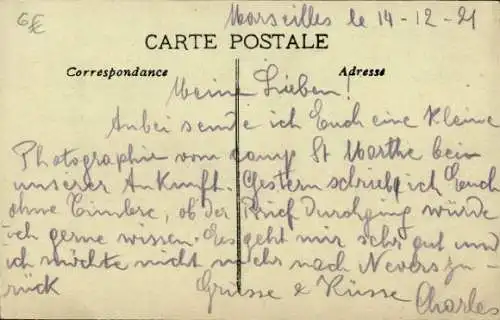 6€
Marseilles le 14-12-21
CARTE POSTALE
Correspondance
Adresse
Meine Lieben!
Anbei sende ich Euch eine kleine
Photographie vom Camp St Marthe bein
unserer Ankunft. Gestern schrieb ich Euch
ohne Timbre, ob der Brief durchging würde
ich gerne wissen. Es geht mir sehr gut und
ich möchte nicht mehr nach Nevers zu-
rück
Grüsse & Küsse
Charles